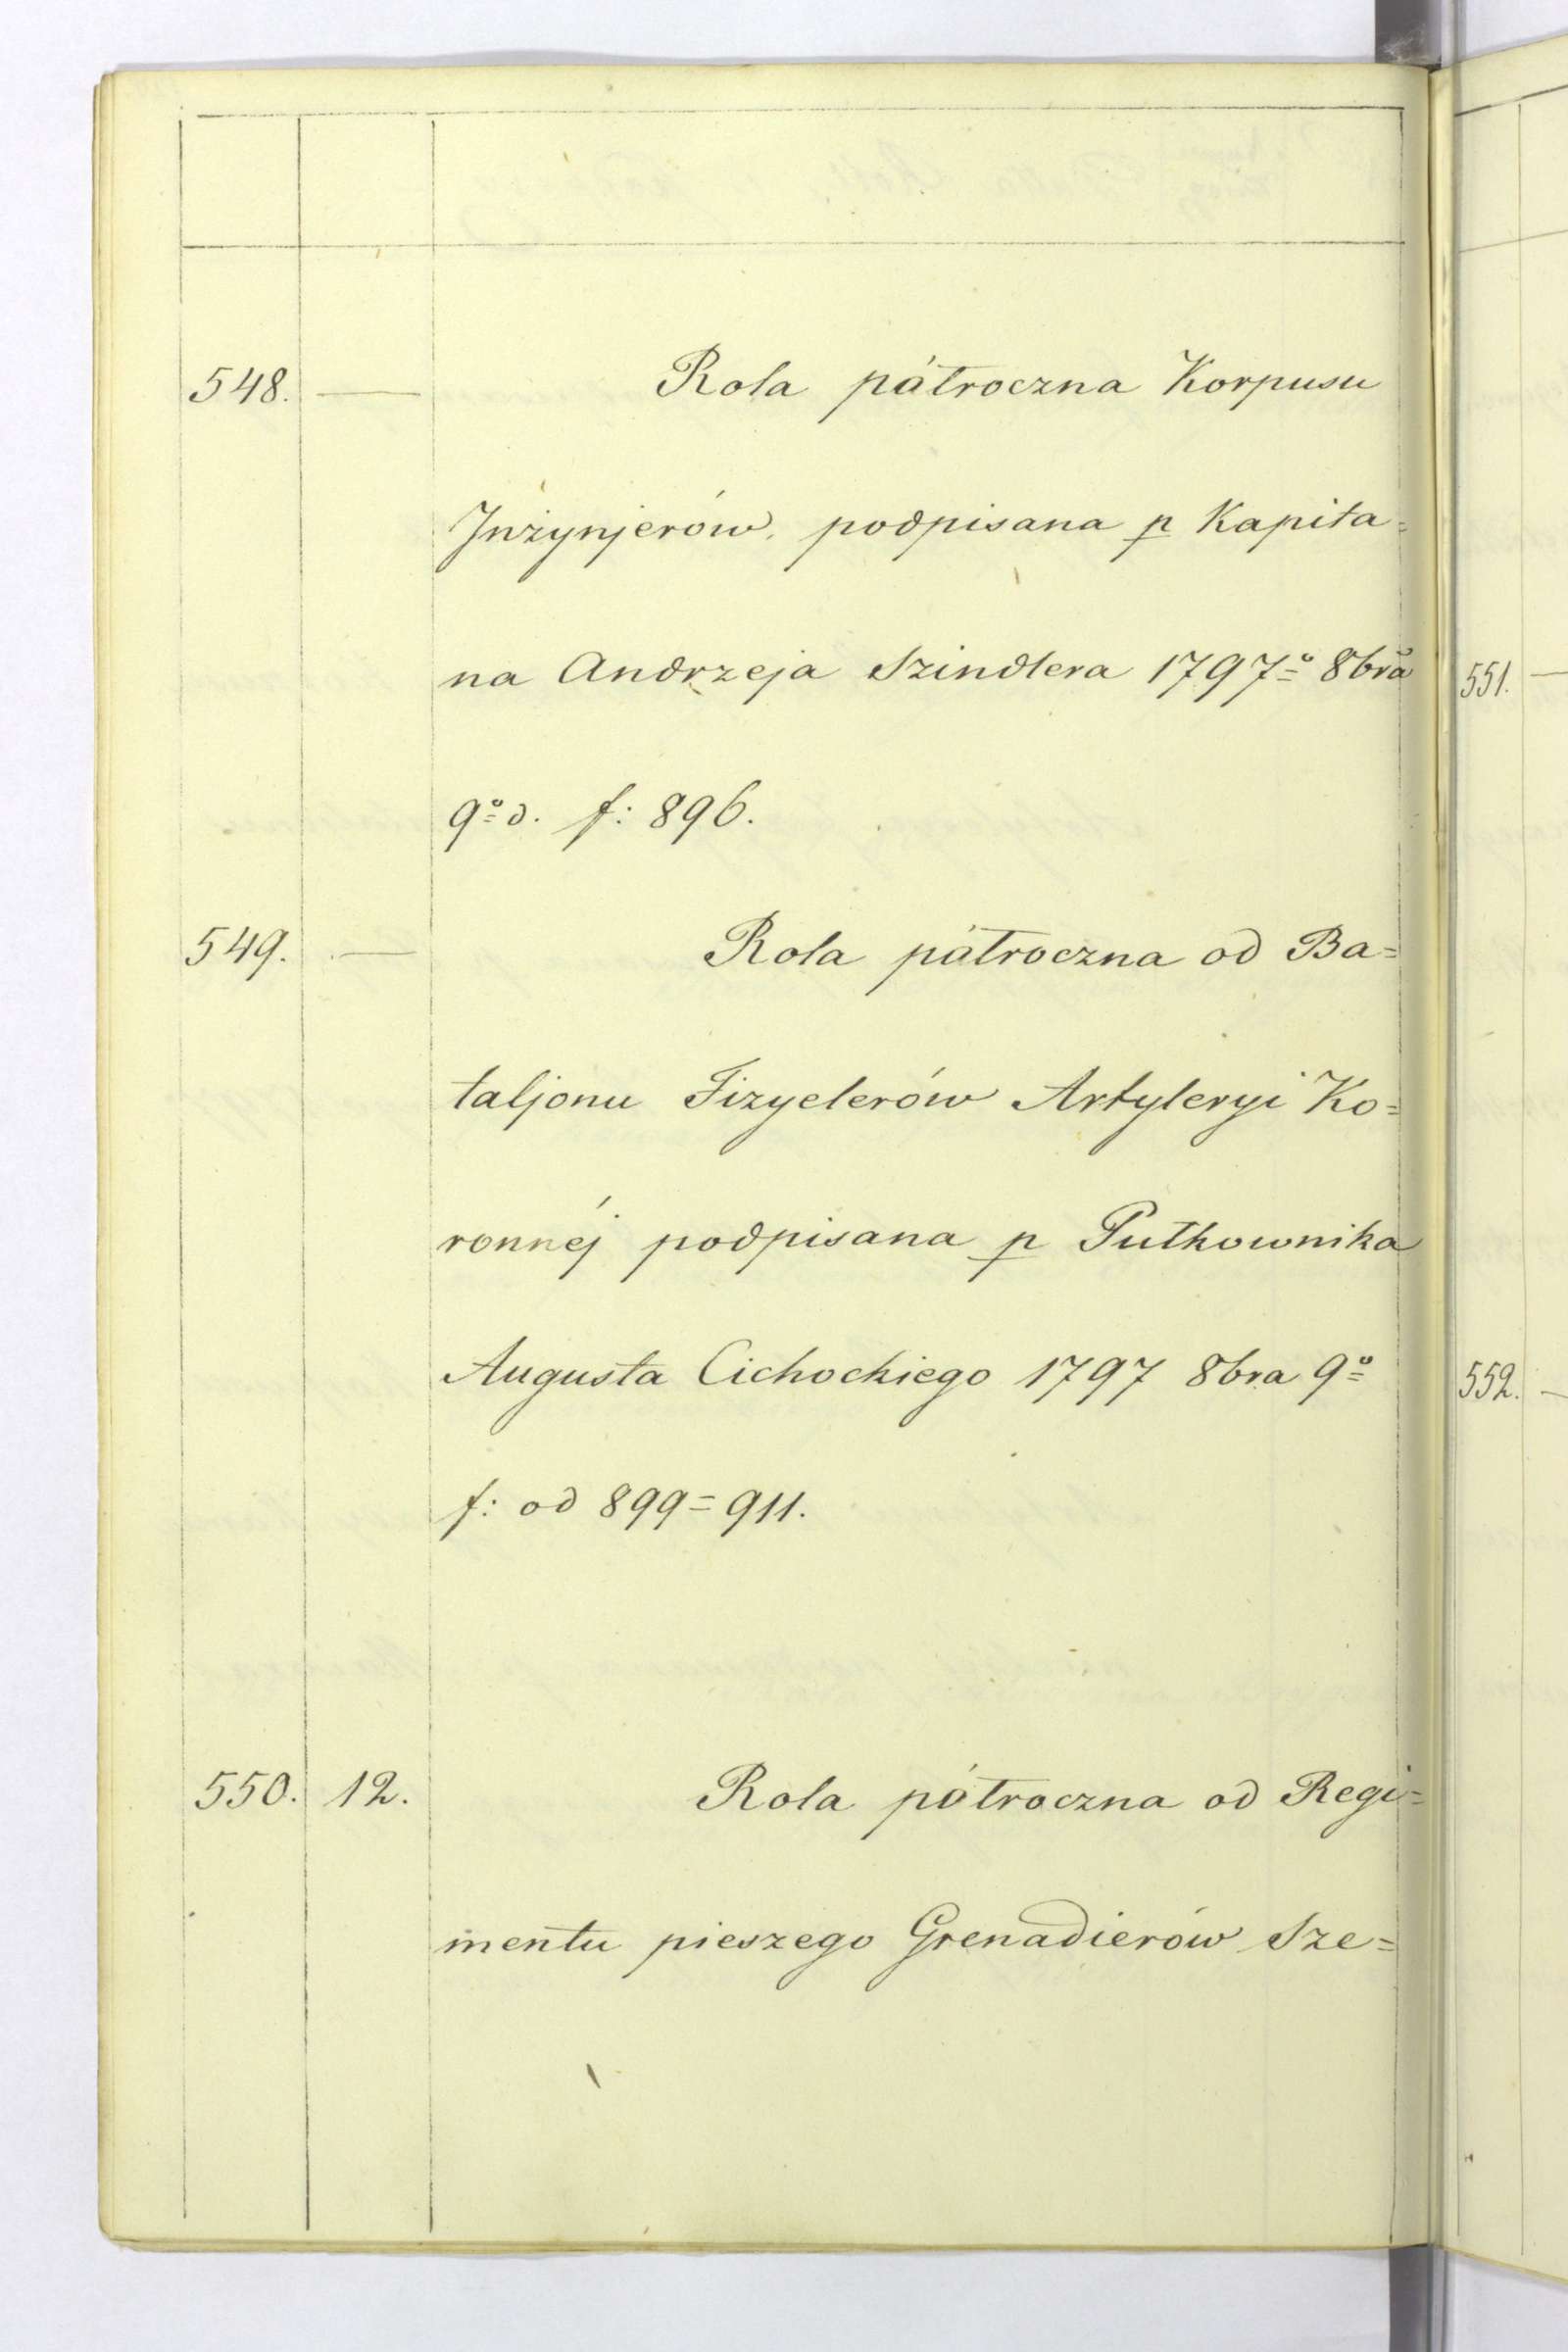 548. — Rola półroczna Korpusu
Inżynjerów, podpisana p Kapita=
na Andrzeja Szindlera 1797º 8bra
9º d. f: 896.
549. — Rola półroczna od Ba=
taljonu Fizyelerów Artyleryi Ko=
ronnéj podpisana p Pułkownika
Augusta Cichockiego 1797 8bra 9º
f: od 899=911.
550. 12. Rola półroczna od Regi=
mentu pieszego Grenadierów Sze=
551. —
552. —